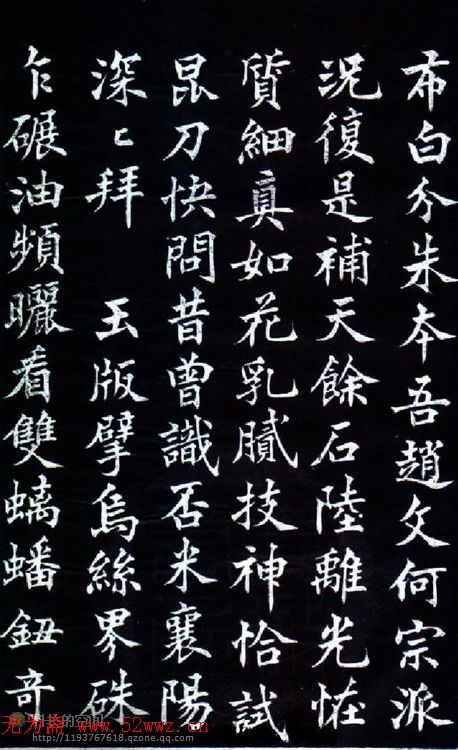 布白分朱本吾趙文何宗派
況復是補天餘石陸離光恠
質細真如花乳膩技神恰試
昆刀快問昔曾識否米襄陽
深〻拜 玉版擘烏絲界硃
乍碾油頻曬看雙螭蟠鈕奇
的空间
无为斋 www.52wwz.cn
http://1193767618.qzone.qq.com